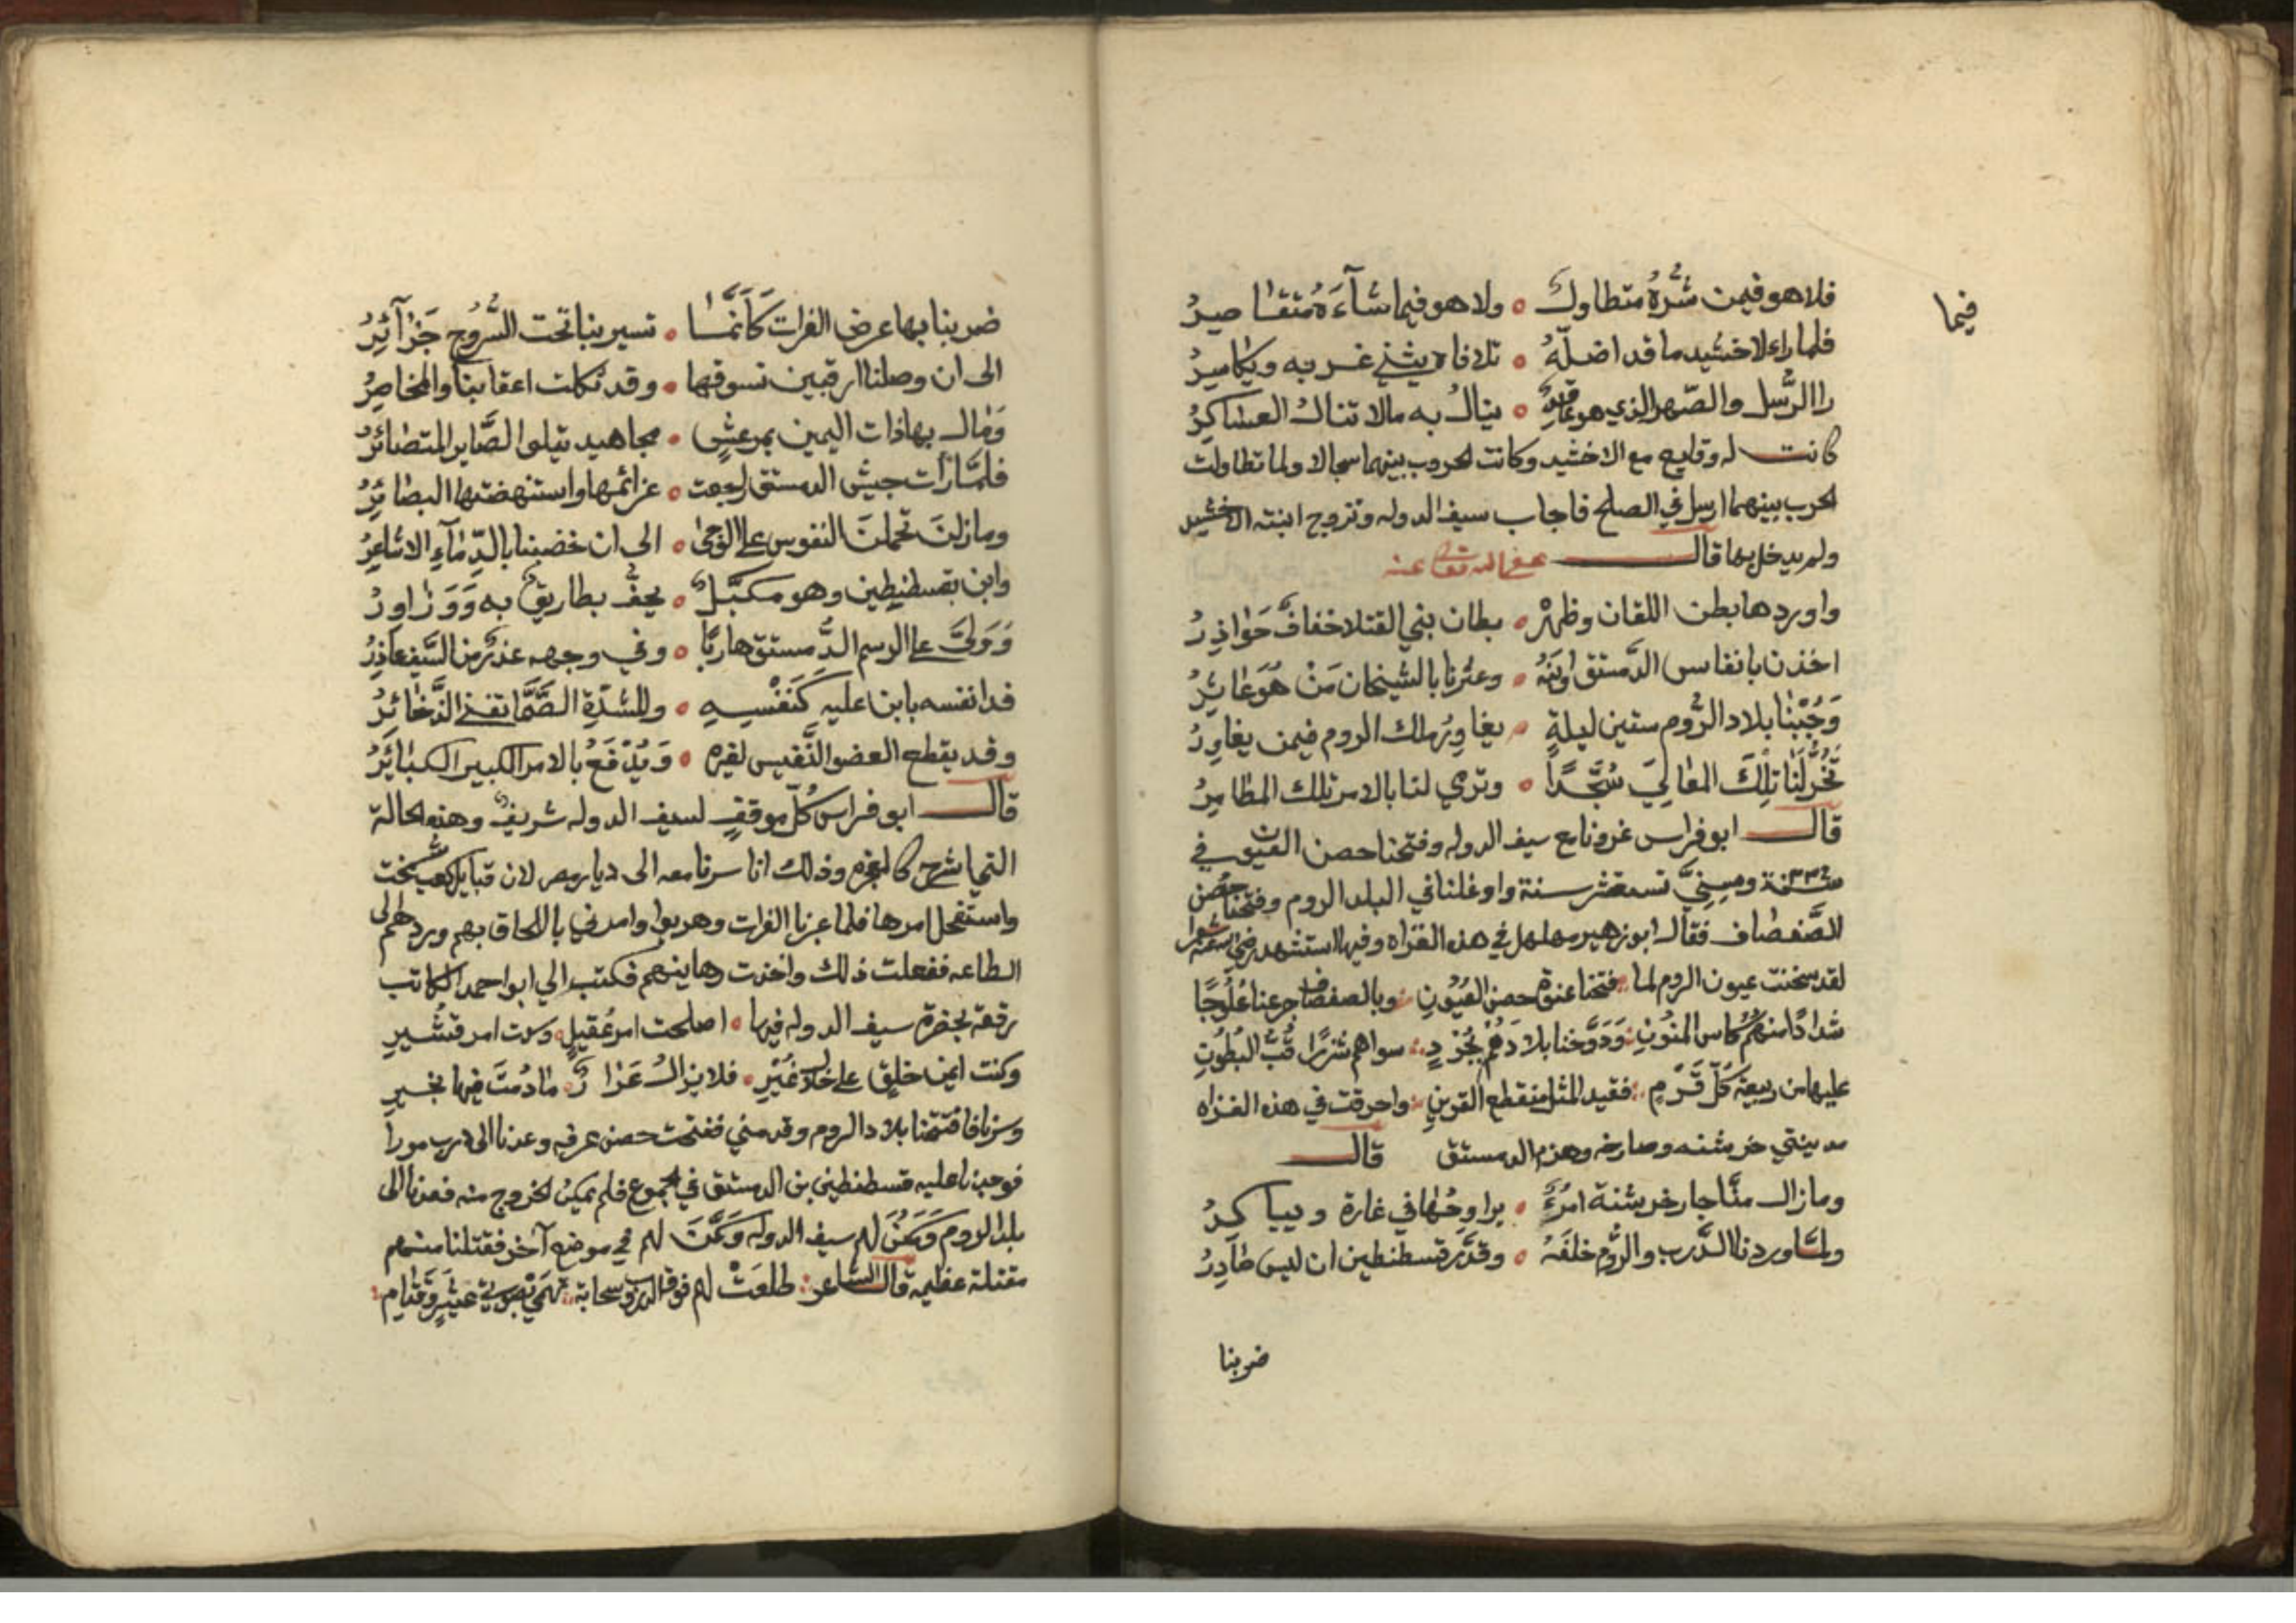 فيما
فلاهو فيمن شره متطاول ٥ ولا هو فيما شآءه متقاصر
فلما راى الاخشيد ما قد اضله ٥ تلافاه يثني غربه ويكاسر
را الرسل والصهر الذي هو عاقد ٥ ينال به مالا تنال العساكر
كانت له وقايع مع الاخشيد وكانت الحروب بينهما سجالا ولما تطاولت
الحرب بينهما ارسل في الصلح فاجاب سيف الدوله وتزوج ابنته الاخشيد
ولم يدخل بها قال عفى الله تعالى عنه
واوردها بطن اللقان وظهره ٥ بطان بني القتلا خفاف حوادر
اخذن بانفاس الدمستق وابنه ٥ وعثرنا بالتيجان من هو عاثر
وجبنا بلاد الروم ستين ليلة ٥ يغاور ملك الروم فيمن يغاور
تخر لنا تلك المعالي سجدا ٥ وترمي لنا بالامر تلك المطامر
قال ابو فراس غزونا مع سيف الدوله وفتحنا حصن العيون في
سنة ٣٣٩ وسني تسع عشر سنة واوغلنا في البلد الروم وفتحنا حصن
الصفصاف فقال ابو زهير مهلهل في هذه الغزاه وفيها استشهد رضي الله عنه شعرا
لقد سخنت عيون الروم لما ∴ فتحنا عنوة حصن العيون ∴ وبالصفصاف جرعنا علوجا
شدادا منهم كاس المنون ∴ ودوخنا بلادهم بجرد ∴ سواهم شزرا قب البطون
عليها من ربيعة كل قرم ∴ فقيد المثل منقطع القرين ∴ واحرقت في هذه الغزاه
مدينتي خرشنه وصارخه وهزم الدمستق قال
وما زال منا جار خرشنة امرء ٥ يراوحها في غارة ويباكر
ولما وردنا الدرب والروم خلفه ٥ وقدر قسطنطين ان ليس صادر
ضربنا
ضربنا بها عرض الفرات كأنما ٥ تسير بنا تحت السروج جزآئر
الى ان وصلنا ارقنين نسوقها ٥ وقد نكلت اعقابنا والمخاصر
ومال بها ذات اليمين بمرعش ٥ مجاهيد يتلوا الصابر المتصائر
فلما رأت جيش الدمستق راجعت ٥ عزائمها واستنهضتها البصائر
ومازلن تحملن النفوس على الوجى ٥ الى ان خضبنا بالدمآء الاشاعر
وابن بقسطنطين وهو مكبل ٥ يحف بطاريق به ووزاور
وولى على الرسم الدمستق هاربا ٥ وفي وجهه عذر من السيف عاذر
فدا نفسه بابن عليه كنفسه ٥ وللشدة الصما تقنى الذخائر
وقد يقطع العضو النفيس لغيره ٥ ويدفع بالامر الكبير الكبائر
قال ابو فراس كل موقف لسيف الدوله شريف وهذه الحالة
التي شرح كالمعجزه وذلك انا سرنا معه الى ديار مضر لان قبايل كعب شخت
واستفحل امرها فلما عبرنا الفرات وهربوا وامرني باللحاق بهم وردهم الى
الطاعه ففعلت ذلك واخذت رهاينهم فكتب الي ابو احمد الكاتب
رقعة بحضرة سيف الدوله فيها ٥ اصلحت امر عقيل ٥ وست امر قشير
وكنت ايمن خليق على خلايق غير ٥ فلا يزال عزا ر ٥ ما دمت فيها بخير
وسرنا فافتتحنا بلاد الروم وقدمني ففتحت حصن عرفه وعدنا الى درب موزا
فوجدنا عليه قسطنطين بن الدمستق في الجموع فلم يمكن الخروج منه فعدنا الى
بلد الروم وكمن لهم سيف الدوله وكمنت لهم في موضع آخر فقتلنا منهم
مقتلة عظيمه قال الشاعر ∴ طلعت لهم فوق الدروب سحابة ∴ تهمي بصوبي عثير وقتام ∴